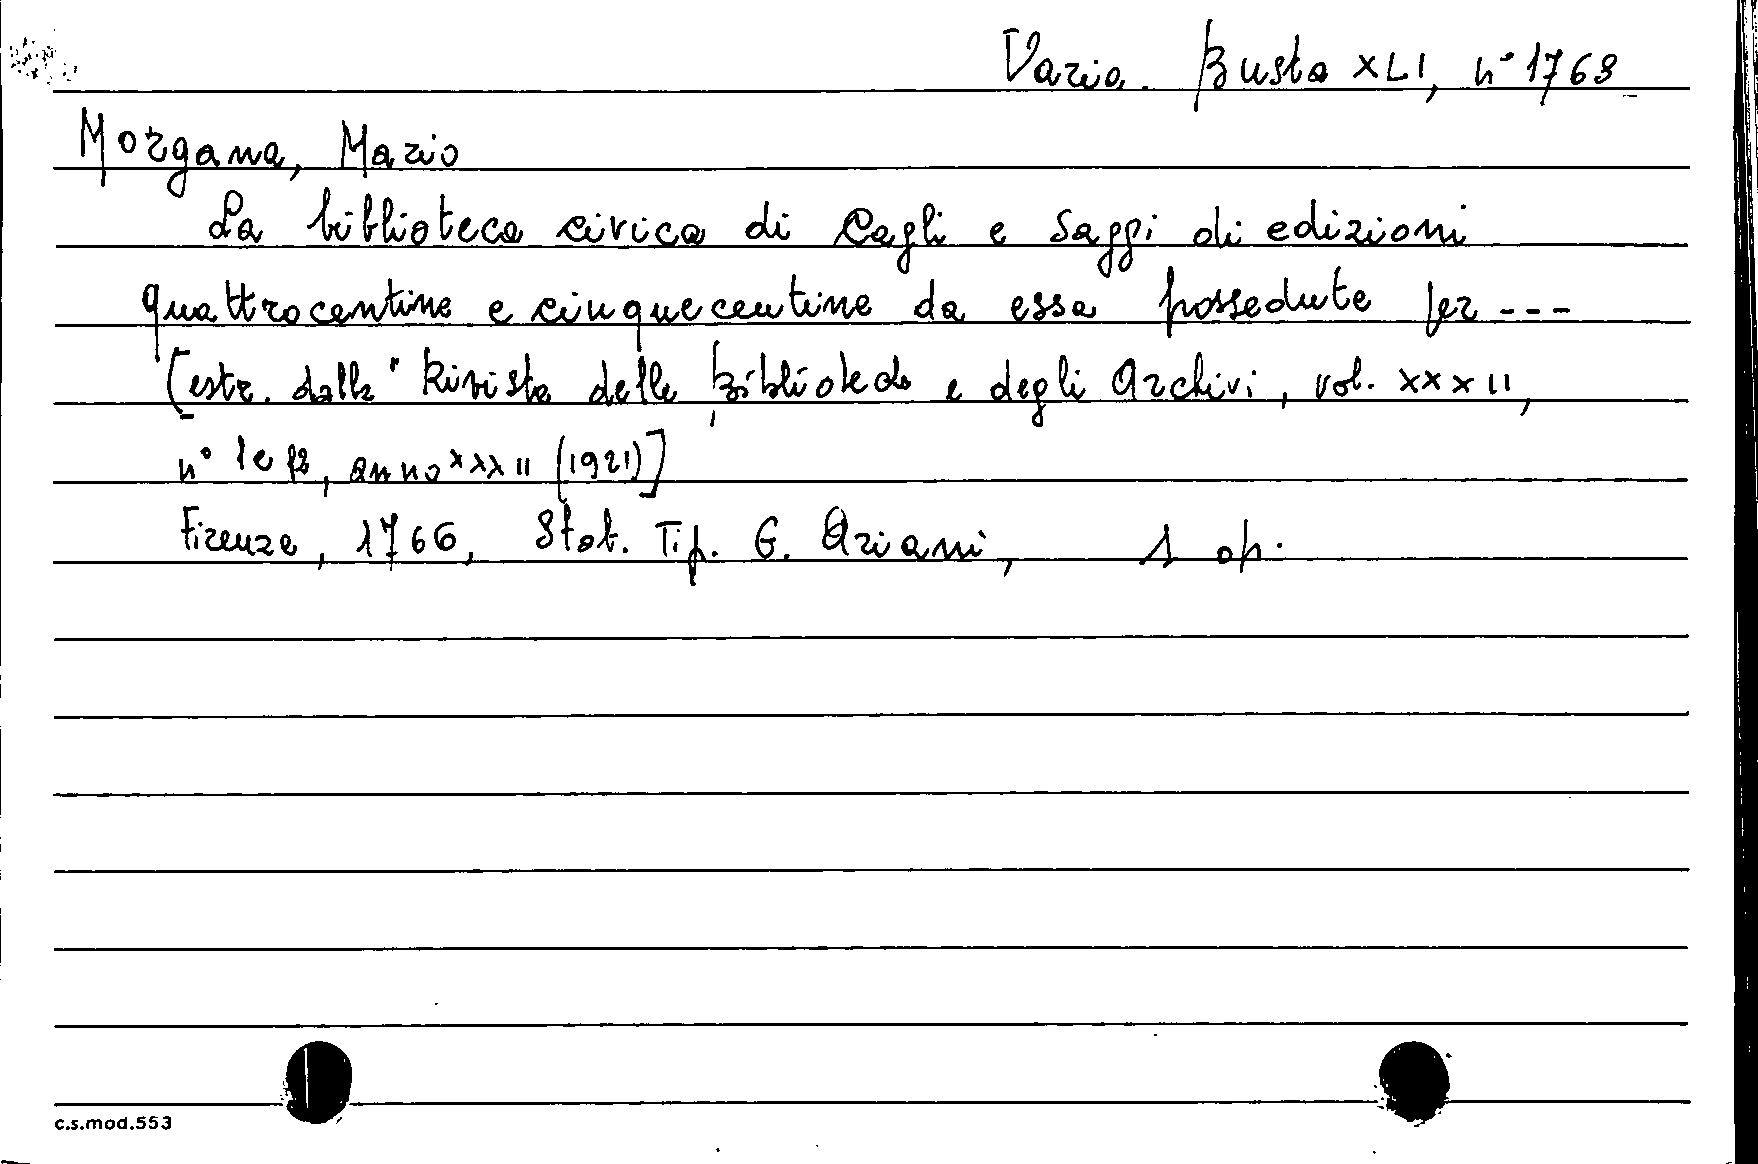 Varia. Busta XLI, n° 1768
Morgana, Mario
La biblioteca civica di Cagli e saggi di edizioni
quattrocentine e cinquecentine da essa possedute per ---
[estr. dalla "Rivista delle Biblioteche e degli Archivi, vol. XXXII,
n° 1 e 12, anno XXXII (1921)]
Firenze, 1766, Stab. Tip. G. Ariani, 1 op.
c.s.mod.553